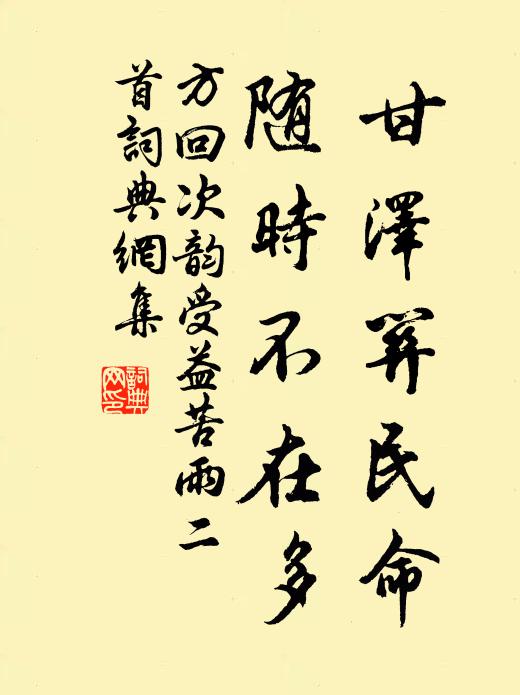 甘澤關民命
随時不在多
方回次韵受益苦雨二
首詞典網集
詞典
网印